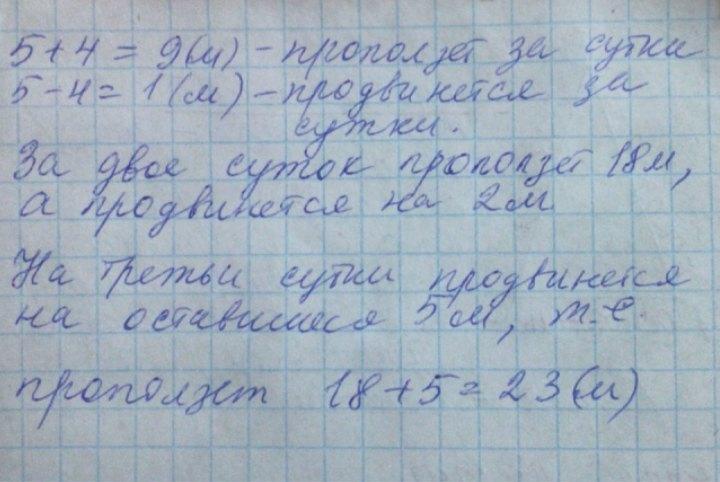 5+4 = 9(м) – проползет за сутки
5-4 = 1 (м) – продвинется за
сутки.
За двое суток проползет 18м,
а продвинется на 2м
На третьи сутки продвинется
на оставшиеся 5м, т.е.
проползет 18+5=23(м)